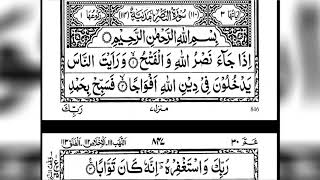 سُوْرَةُ النَّصْرِ مَدَنِيَّةٌ
بِسْمِ اللّٰهِ الرَّحْمٰنِ الرَّحِيْمِ
اِذَا جَآءَ نَصْرُ اللّٰهِ وَ الْفَتْحُ ۙ وَ رَاَيْتَ النَّاسَ
يَدْخُلُوْنَ فِيْ دِيْنِ اللّٰهِ اَفْوَاجًا ۙ فَسَبِّحْ بِحَمْدِ
رَبِّكَ
منزل ٧
عم ٣٠
رَبِّكَ وَ اسْتَغْفِرْهُ ؔ اِنَّهٗ كَانَ تَوَّابًا